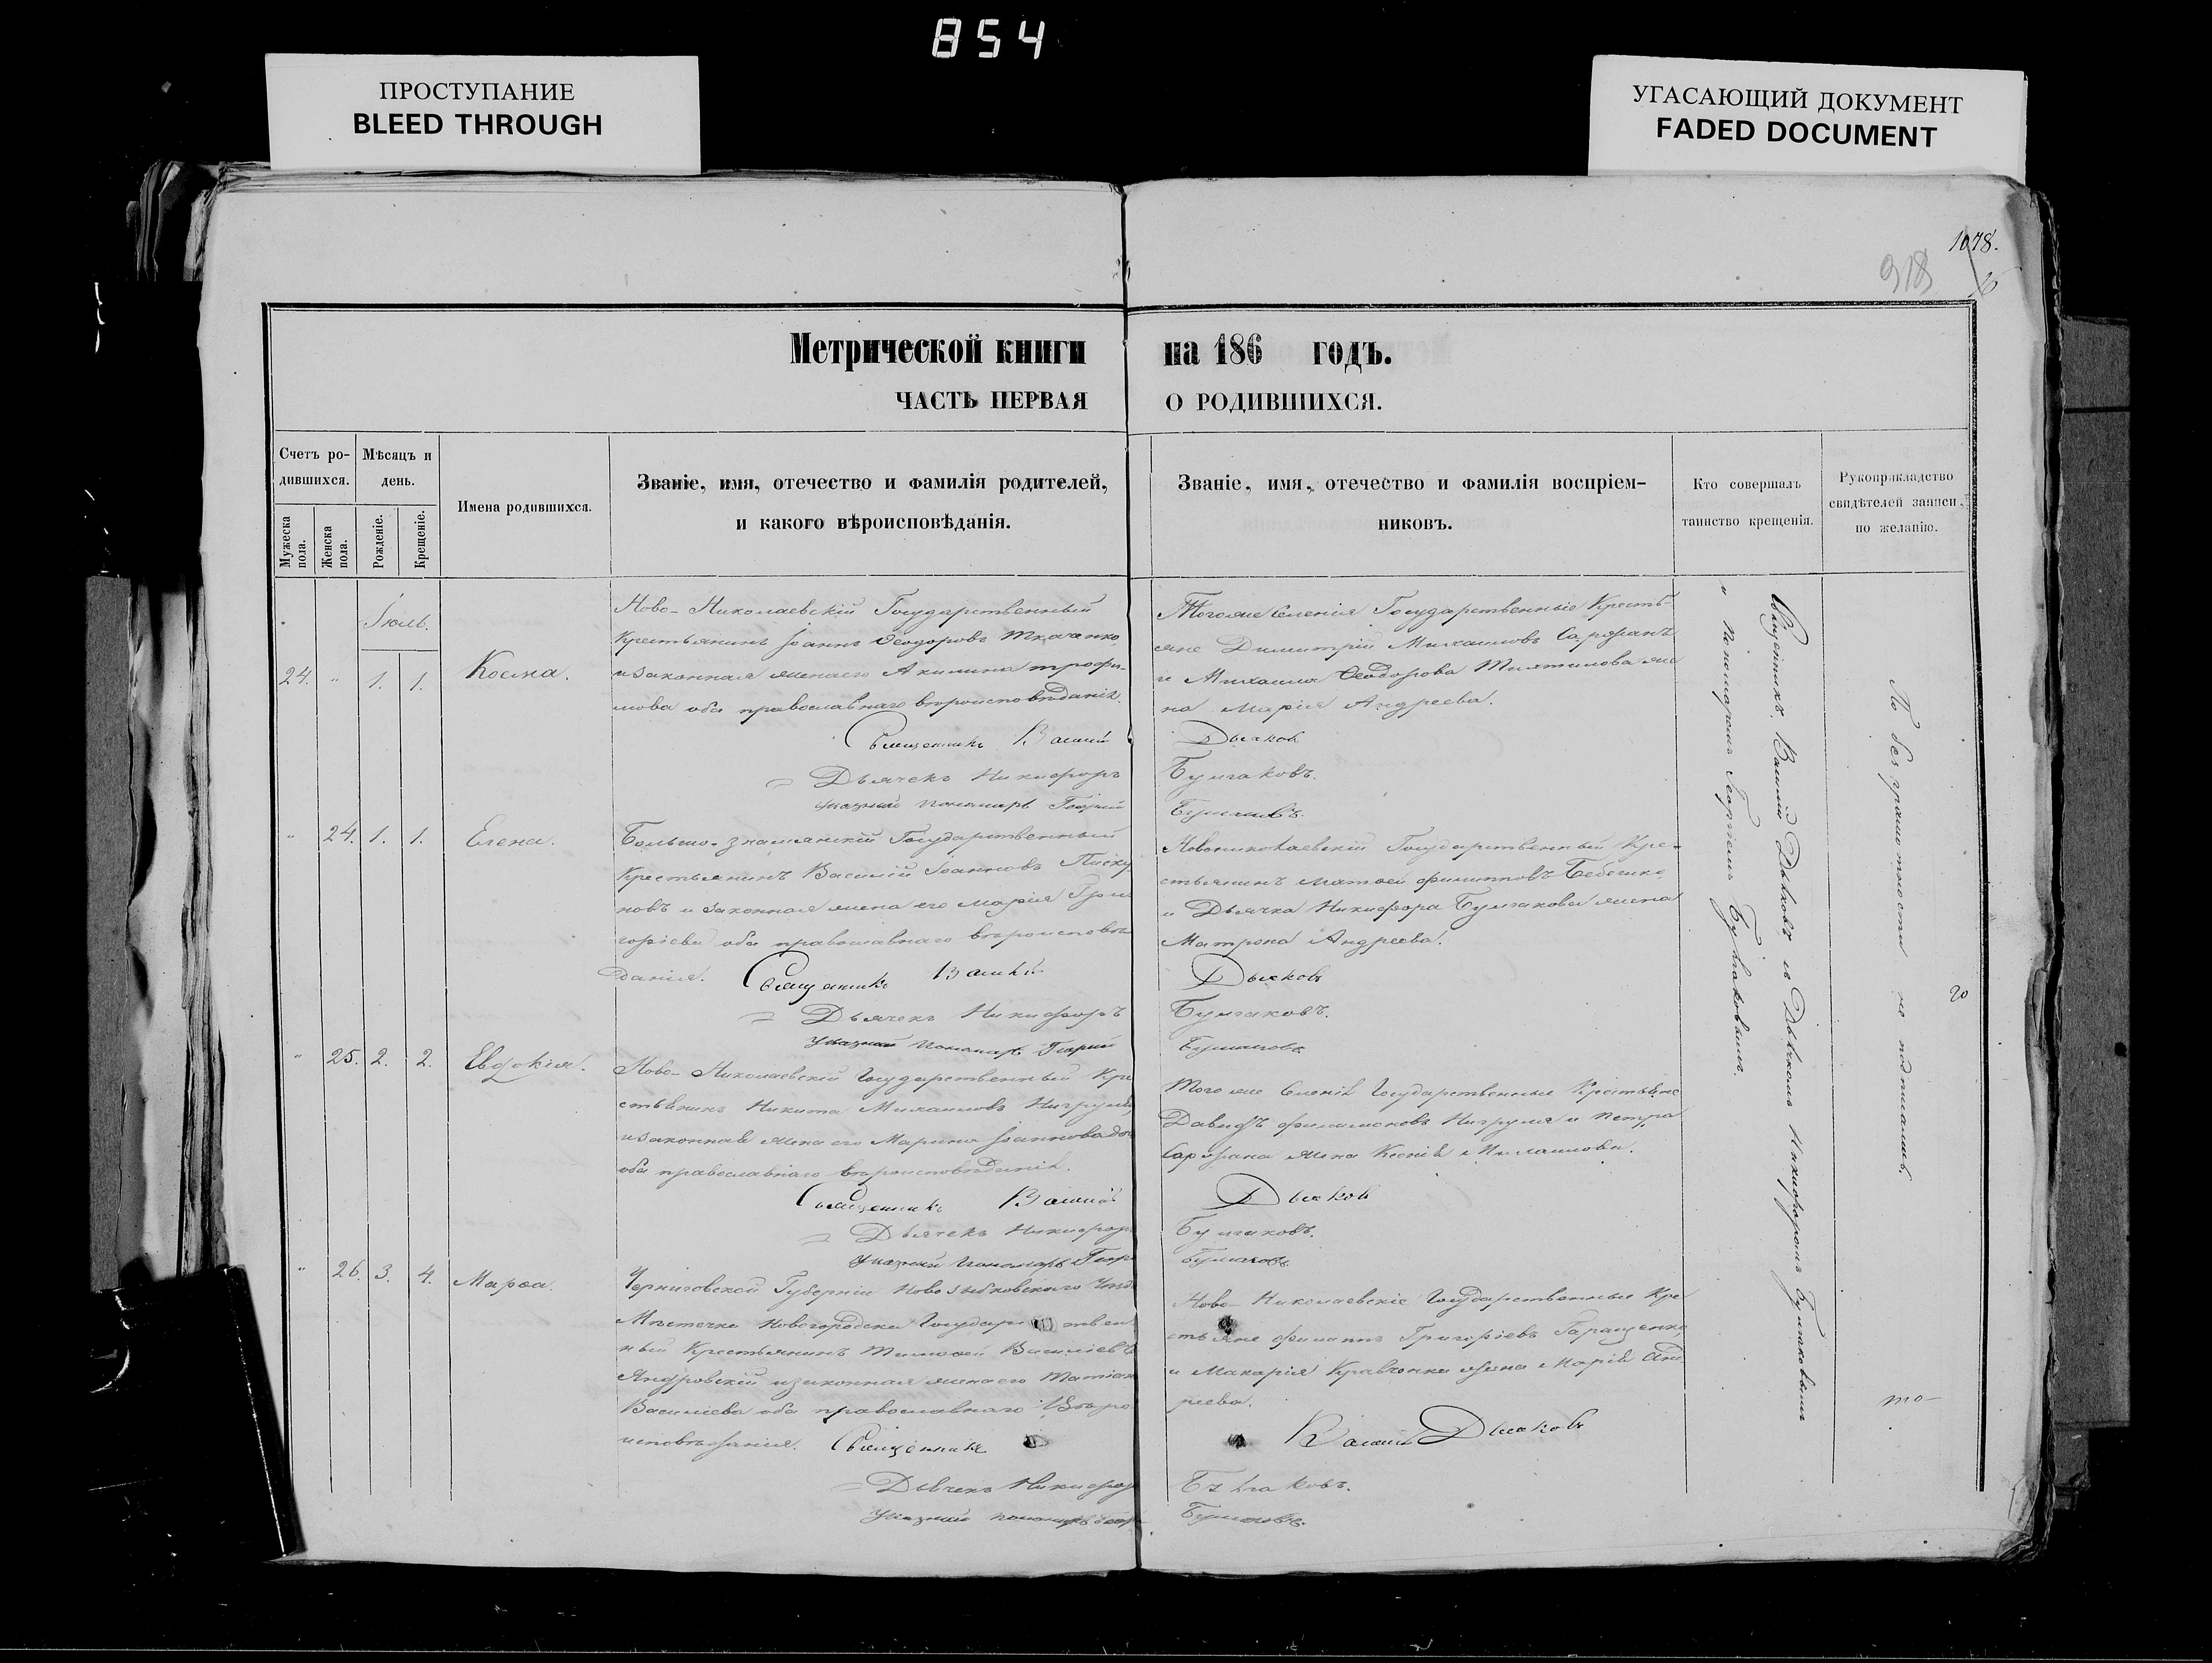 854
ПРОСТУПАНИЕ
BLEED THROUGH
УГАСАЮЩИЙ ДОКУМЕНТ
FADED DOCUMENT
1078.
918
Метрической книги на 186 годъ.
ЧАСТЬ ПЕРВАЯ О РОДИВШИХСЯ.
Счетъ ро-
дившихся.
Мужеска пола.
Женска пола.
Мѣсяцъ и
день.
Рожденіе.
Крещеніе.
Имена родившихся.
Званіе, имя, отечество и фамилія родителей,
и какого вѣроисповѣданія.
Званіе, имя, отечество и фамилія воспріем-
никовъ.
Кто совершалъ
таинство крещенія.
Рукоприкладство
свидѣтелей записи,
по желанію.
Іюль.
24. " 1. 1. Косма.
Ново-Николаевскій Государственный
Крестьянинъ Іоаннъ Ѳеодоровъ Ткаченко
и законная жена его Акилина Трофи-
мова оба православнаго вѣроисповѣданія.
Священникъ Василий
Дьячекъ Никифоръ
Указный Пономарь Георгий
Тогоже Селенія Государственные Кресть-
яне Димитрій Михаиловъ Саржанъ
и Михаила Ѳеодорова же
на Марія Андреева.
Дьяков
Булгаковъ.
Булгаковъ.
" 24. 1. 1. Елена.
Больше-Знаменскій Государственный
Крестьянинъ Василій Іоанновъ Писку
новъ и законная жена его Марія Гри
горіева оба православнаго вѣроисповѣ
данія. Священникъ Василий
Дьячекъ Никифоръ
Указный Пономарь Георгий
Новониколаевскій Государственный Кре-
стьянинъ Матвей Филипповъ
и Дьячка Никифора Булгакова жена
Матрона Андреева.
Дьяковъ
Булгаковъ.
Булгаковъ
" 25. 2. 2. Евдокія.
Ново-Николаевскій Государственный Кре
стьянинъ Никита Михаиловъ
и законная жена его Марина Іоаннова
оба православнаго вѣроисповѣданія.
Священникъ Василий
Дьячекъ Никифоръ
Указный Пономарь Георг
Того же Селенія Государственные Крестьяне
Давидъ Филимоновъ и Петра
Саржана жена Ксенія Михаилова.
Дьяков
Булгаковъ.
Булгаковъ
" 26. 3. 4. Марѳа.
Черниговской Губерніи Новозыбковскаго Уѣзд
Мѣстечка Государствен
ный Крестьянинъ Тимоѳей Василіевъ
и законная жена его Татіан
Василіева оба православнаго Вѣро
исповѣданія. Священникъ
Дьячекъ Никифор
Указный пономарь Геор
Ново-Николаевскіе Государственные Кре
стьяне Филиппъ Григоріевъ Гаращенко
и Макарія Кравченка жена Марія Анд
реева.
Василий Дьяковъ
Булгаковъ.
Булгаковъ.
Священникъ Василий Дьяковъ съ Дьячкомъ Никифоромъ Булгаковымъ
и Пономаремъ Георгіемъ Булгаковымъ.
По безграмотности не подписались.
20
то-